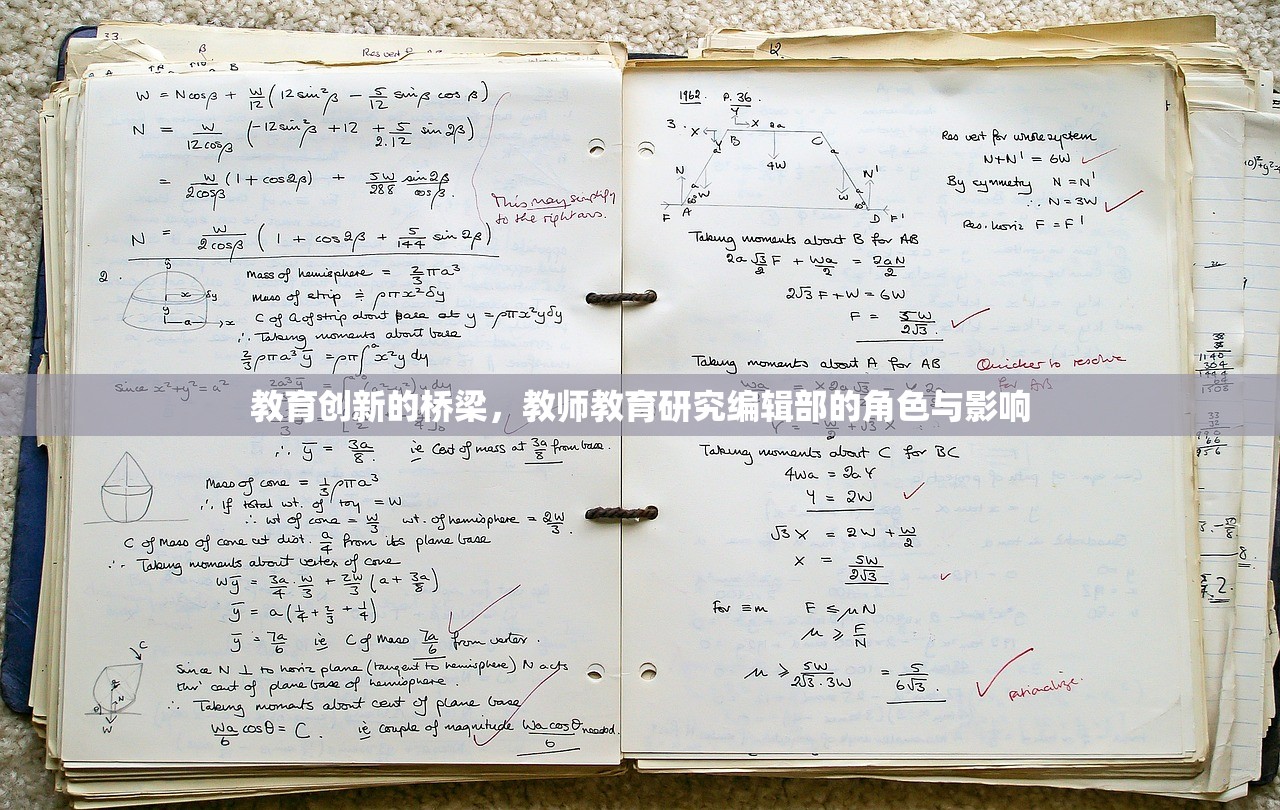 33.
Res vert
W = N cos β + W/12 (12 sin² β − 5/12 sin β cos β)
N = W/(12 cos β) (−12 sin² β + 12 + 5/2.12 sin 2β)
= W/(2 cos β) (1 + cos 2β) + 5W/288 sin 2β/cos β.
This may simplify
to the right ans.
N = W/(2 cos β) (1 + cos 2β + 5/144 sin 2β)
2.
Mass of hemisphere = 2/3 πa³
mass of strip ≑ ρπx²δy
C of G of strip about base at y = ρπx²yδy
∴ Taking moments about base
2/3 ρπa³ȳ = ρπ∫x²y dy
since x²+y² = a²
∴ ȳ = 3a/8. ie Cent of mass at 3a/8 from base.
Mass of cone = 1/3 ρπa³
∴ If total wt. of toy = W
∴ wt of cone = W/3 wt. of hemisphere = 2W/3.
C of Mass of cone at dist. a/4 from its plane base
∴ Taking moments about vertex of cone
Wȳ = 3a/4 . W/3 + 2W/3 (a + 3a/8)
ȳ = a(1/4 + 2/3 + 1/4)
ȳ = 7a/6 ie C of Mass 7a/6 from vertex.
Since N ⊥ to horiz plane (tangent to hemisphere) N acts
thro' cent of plane base of hemisphere.
∴ Taking moments about cent of plane base
Wa/6 cos θ = C. ie couple of magnitude Wa cos θ/6 needed.
1962. P. 36.
3.
Res vert for whole system
N+N' = 6W
By symmetry N = N'
∴ N = 3W
Res. horiz F = F'
Taking moments about B for AB
2a √3/2 F + Wa/2 = 2aN/2
2√3 F + W = 6W
F = 5W/2√3.
Taking moments about A for AB
Quicker to resolve
for AB
教育创新的桥梁，教师教育研究编辑部的角色与影响
Taking moments about C for BC
4Wa = 2aY
Y = 2W
√3 X = 2W + W/2
X = 5W/2√3
For ≡m F ≤ μN
μ ≥ F/N
μ ≥ 5W/2√3.3W = 5/6√3.
rationalize.